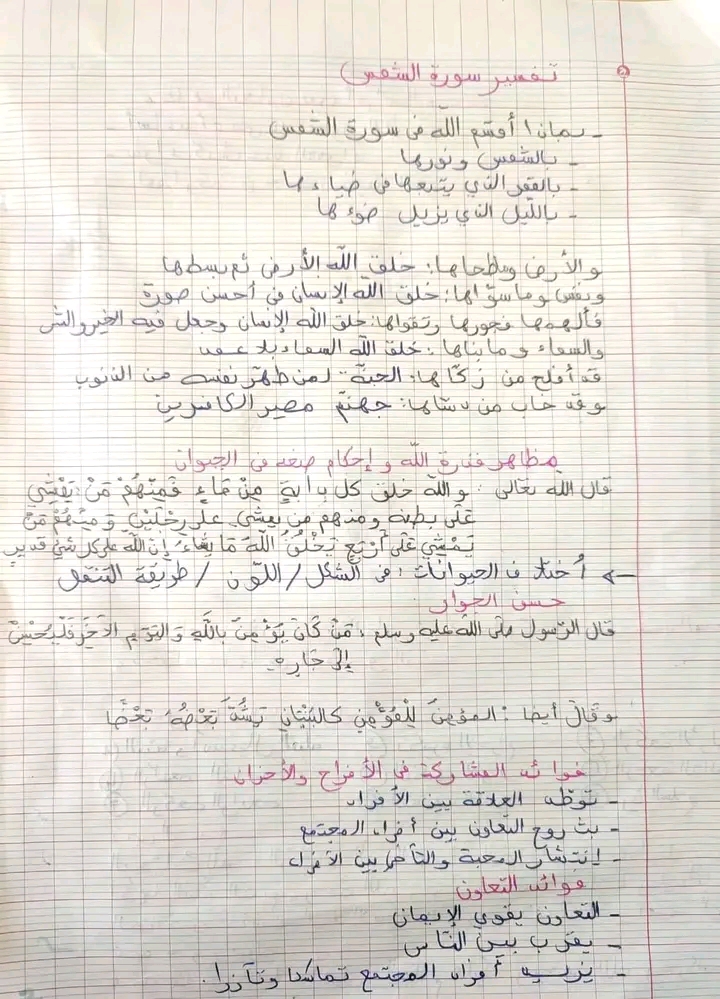 ② تفسير سورة الشمس
- بماذا أقسم الله في سورة الشمس
- بالشمس ونورها
- بالقمر الذي يتبعها في ضياءها
- بالليل الذي يزيل ضوءها
والأرض وماطحاها: خلق الله الأرض ثم بسطها
ونفس وماسوّاها: خلق الله الإنسان في أحسن صورة
فألهمها فجورها وتقواها: خلق الله الإنسان وجعل فيه الخير والشر
والسماء وما بناها: خلق الله السماء بلا عمد
قد أفلح من زكّاها: الجنّة لمن طهّر نفسه من الذنوب
وقد خاب من دساها: جهنّم مصير الكافرين
مظاهر قدرة الله وإحكام صنعه في الحيوان
قال الله تعالى: والله خلق كل دابةٍ مِنْ مَاءٍ فَمِنْهُمْ مَنْ يَمْشِي
عَلَى بطنه ومنهم من يمشي على رِجْلَيْنِ وَمِنْهُمْ مَنْ
يَمْشِي عَلَى أَرْبَعٍ يَخْلُقُ اللَّهُ مَا يشَاءُ إِنَّ الله على كل شيْ قدير
→ أختلاف الحيوانات: في الشكل / اللّون / طريقة التنقل
حسن الجوار
قال الرّسول صلى الله عليه وسلم: مَنْ كَانَ يُؤْمِنُ بِاللَّهِ وَاليَوْمِ الآخِرِ فَلْيُحْسِنْ
إِلَى جَارِهِ.
وقال أيضا: المؤمنُ لِلْمُؤْمِنِ كالبُنْيَانِ يَشُدُّ بَعْضُهُ بَعْضًا
فوائد المشاركة في الأفراح والأحزان
- توطّد العلاقة بين الأفراد
- بث روح التعاون بين أفراد المجتمع
- إنتشار المحبة والتآخي بين الأفراد
فوائد التعاون
- التعاون يقوي الإيمان
- يقرّب بين النّاس
- يزيد أفراد المجتمع تماسكا وتآزرا.